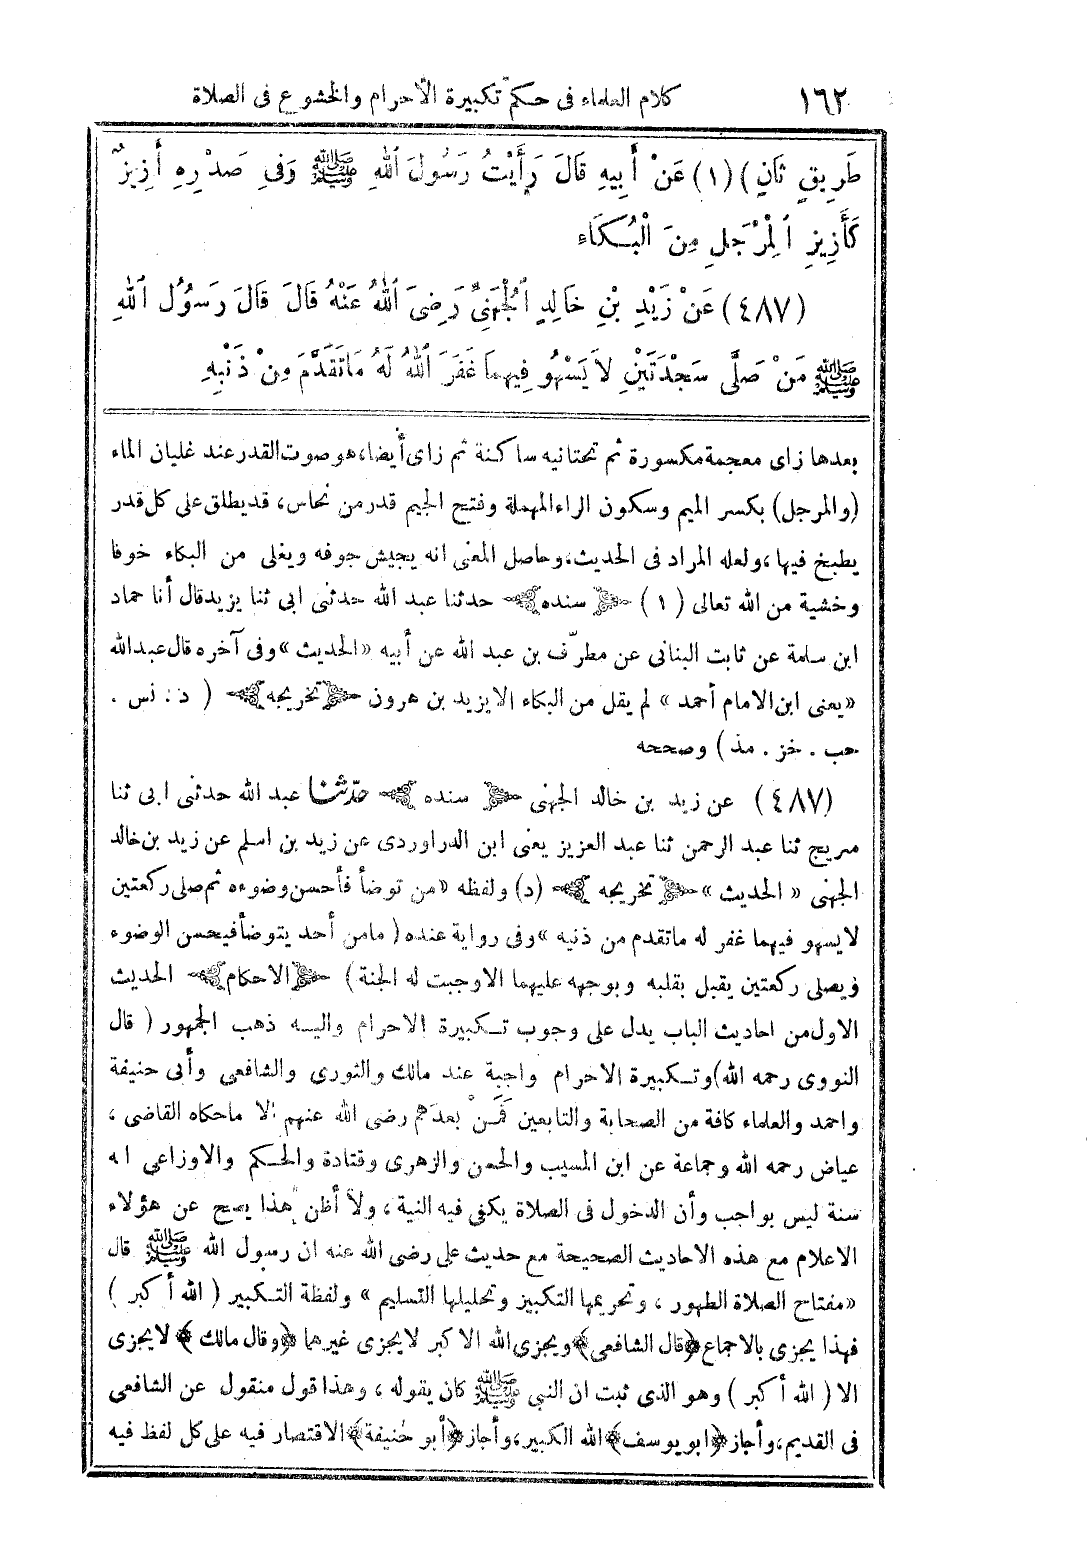 ١٦٢ كلام العلماء فى حكم تكبيرة الأحرام والخشوع فى الصلاة
طَرِيقٍ ثَانٍ) (١) عَنْ أَبِيهِ قَالَ رَأَيْتُ رَسُولَ ٱللهِ ﷺ وَفِى صَدْرِهِ أَزِيزٌ
كَأَزِيزِ ٱلْمِرْجَلِ مِنَ الْبُكَاءِ
(٤٨٧) عَنْ زَيْدِ بْنِ خَالِدٍ ٱلْجُهَنِىِّ رَضِىَ ٱللهُ عَنْهُ قَالَ قَالَ رَسُولُ ٱللهِ
ﷺ مَنْ صَلَّى سَجْدَتَيْنِ لاَ يَسْهُو فِيهِمَا غَفَرَ ٱللهُ لَهُ مَا تَقَدَّمَ مِنْ ذَنْبِهِ
بعدها زاى معجمة مكسورة ثم تحتانيه ساكنة ثم زاى أيضا، هو صوت القدر عند غليان الماء
(والمرجل) بكسر الميم وسكون الراء المهملة وفتح الجيم قدر من نحاس، قد يطلق على كل قدر
يطبخ فيها، ولعله المراد فى الحديث، وحاصل المعنى انه يجيش جوفه ويغلى من البكاء خوفا
وخشية من الله تعالى (١) ﴿سنده﴾ حدثنا عبد الله حدثنى ابى ثنا يزيد قال أنا حماد
ابن سلمة عن ثابت البنانى عن مطرّف بن عبد الله عن أبيه «الحديث» وفى آخره قال عبد الله
«يعنى ابن الامام أحمد» لم يقل من البكاء الا يزيد بن هرون ﴿تخريجه﴾ (د. نس.
حب. خز. مذ) وصححه
(٤٨٧) عن زيد بن خالد الجهنى ﴿سنده﴾ حدّثنا عبد الله حدثنى ابى ثنا
سريج ثنا عبد الرحمن ثنا عبد العزيز يعنى ابن الدراوردى عن زيد بن اسلم عن زيد بن خالد
الجهنى «الحديث» ﴿تخريجه﴾ (د) ولفظه «من توضأ فأحسن وضوءه ثم صلى ركعتين
لا يسهو فيهما غفر له ماتقدم من ذنبه» وفى رواية عنده (مامن أحد يتوضأ فيحسن الوضوء
ويصلى ركعتين يقبل بقلبه وبوجهه عليهما الا وجبت له الجنة) ﴿الاحكام﴾ الحديث
الاول من احاديث الباب يدل على وجوب تكبيرة الاحرام واليه ذهب الجمهور (قال
النووى رحمه الله) وتكبيرة الاحرام واجبة عند مالك والثورى والشافعى وأبى حنيفة
واحمد والعلماء كافة من الصحابة والتابعين فَمَنْ بعدهم رضى الله عنهم الا ماحكاه القاضى،
عياض رحمه الله وجماعة عن ابن المسيب والحسن والزهرى وقتادة والحكم والاوزاعى انه
سنة ليس بواجب وأن الدخول فى الصلاة يكفى فيه النية، ولا أظن هذا يصح عن هؤلاء
الاعلام مع هذه الاحاديث الصحيحة مع حديث على رضى الله عنه ان رسول الله ﷺ قال
«مفتاح الصلاة الطهور، وتحريمها التكبير وتحليلها التسليم» ولفظة التكبير (الله أكبر)
فهذا يجزى بالاجماع ﴿قال الشافعى﴾ ويجزى الله الاكبر لايجزى غيرهما ﴿وقال مالك﴾ لايجزى
الا (الله أكبر) وهو الذى ثبت ان النبى ﷺ كان يقوله، وهذا قول منقول عن الشافعى
فى القديم، وأجاز ﴿ابو يوسف﴾ الله الكبير، وأجاز ﴿أبو حنيفة﴾ الاقتصار فيه على كل لفظ فيه